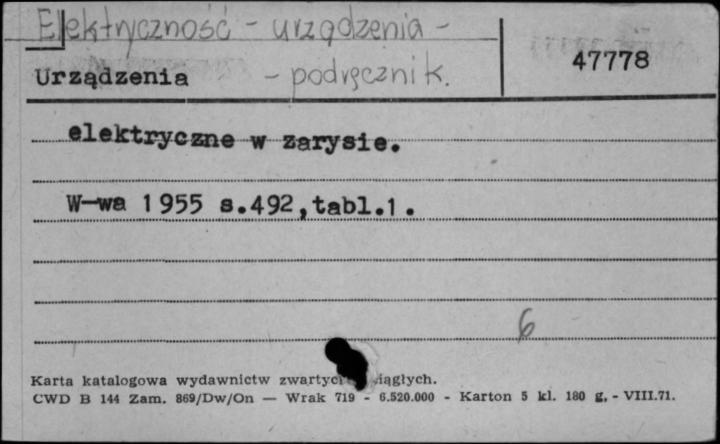 Elektryczność - urządzenia -
Urządzenia - podręcznik.
47778
elektryczne w zarysie.
W-wa 1955 s.492,tabl.1.
6
Karta katalogowa wydawnictw
CWD B 144 Zam. 869/Dw/On — Wrak 719 - 6.520.000 - Karton 5 kl. 180 g. - VIII.71.